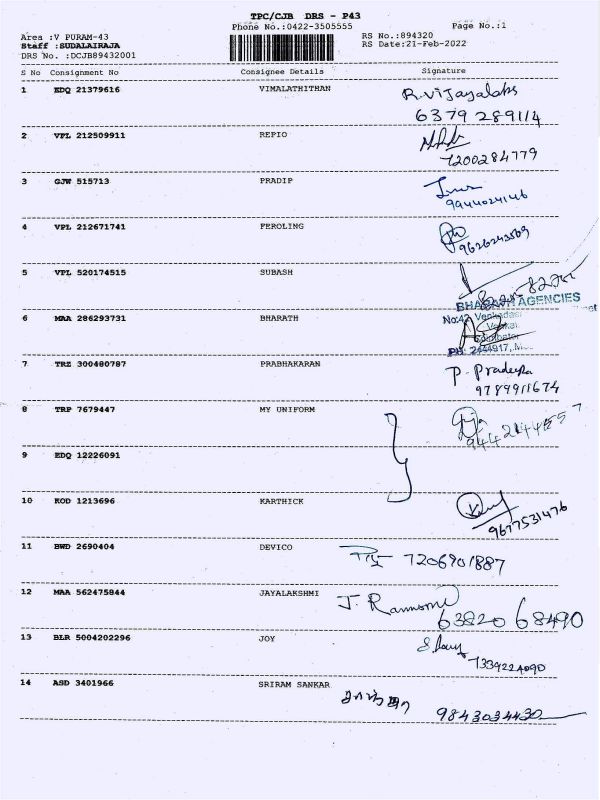 TPC/CJB DRS - P43
Phone No.:0422-3505555 Page No.:1
Area :V PURAM-43 RS No.:894320
Staff :SUDALAIRAJA RS Date:21-Feb-2022
DRS No. :DCJB89432001
S No Consignment No Consignee Details Signature
1 EDQ 21379616 VIMALATHITHAN R.Vijayalaks
6379 289114
2 VPL 212509911 REPIO
7200284779
3 GJW 515713 PRADIP
9944024146
4 VPL 212671741 FEROLING
9626243569
5 VPL 520174515 SUBASH
BHAGAWTI AGENCIES
6 MAA 286293731 BHARATH No:42,
7 TRZ 300480787 PRABHAKARAN P. Pradeepa
9789911674
8 TRP 7679447 MY UNIFORM
9442144557
9 EDQ 12226091
10 KOD 1213696 KARTHICK
9677531476
11 BWD 2690404 DEVICO 7206901887
12 MAA 562475844 JAYALAKSHMI
63820 68490
13 BLR 5004202296 JOY
7339224090
14 ASD 3401966 SRIRAM SANKAR
9843034430